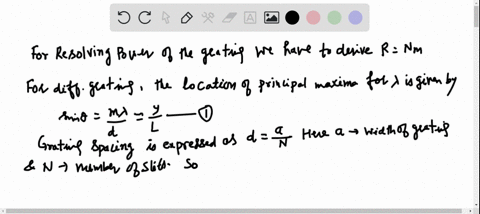 For Resolving Power of the grating we have to derive R = Nm
For diff. grating, the location of principal maxima for λ is given by
sinθ = mλ/d = y/L —— ①
Grating spacing is expressed as d = a/N Here a → width of grating
& N → number of slits. So